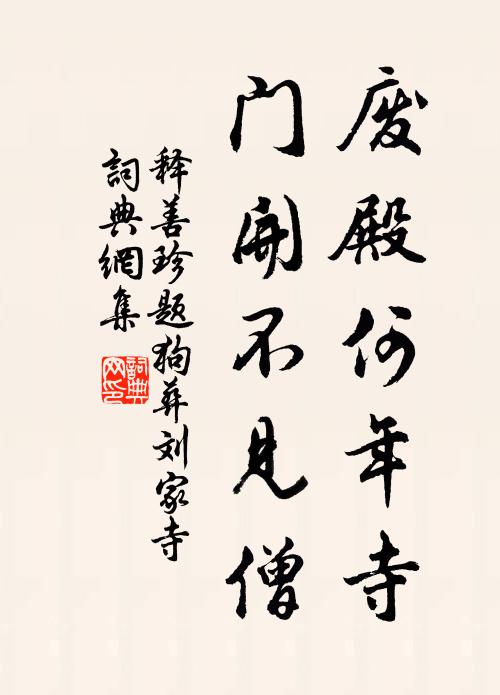 废殿何年寺
门開不見僧
释善珍题狗葬刘家寺
詞典網集
詞典网印